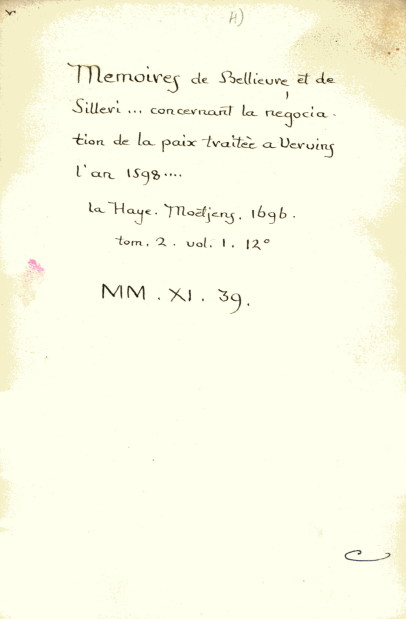 H)
Memoires de Bellieure et de
Silleri ... concernant la negocia-
tion de la paix traitèe a Vervins
l'an 1598....
la Haye. Moëtjens, 1696.
tom. 2. vol. 1. 12°
MM. XI. 39.
C